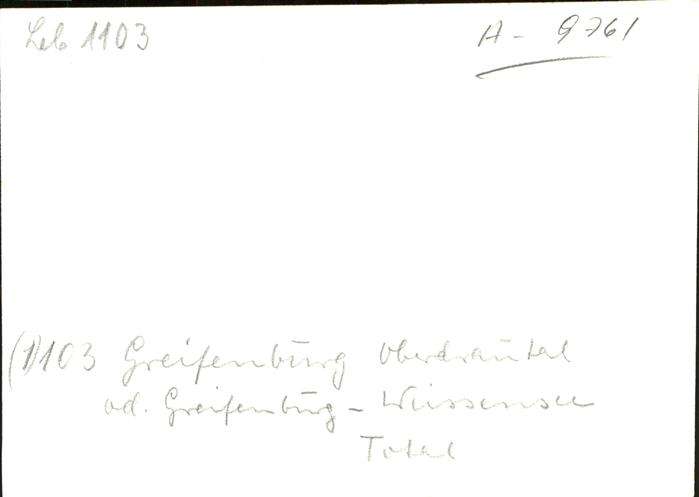 Leb 1103 A - 9761
(1)103 Greifenburg Oberdrautal
od. Greifenburg - Weissensee
Total